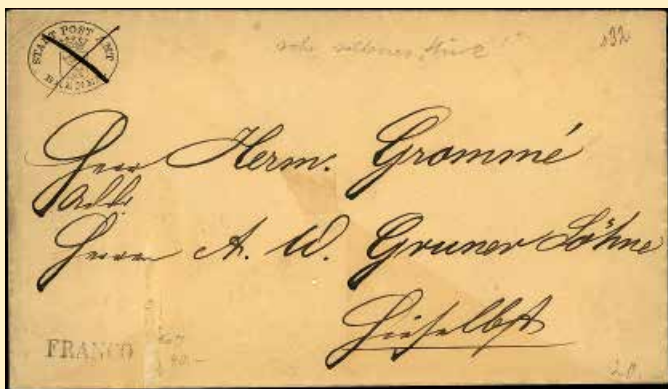 STADT POST AMT
BREMEN
sehr seltenes
132
Herr Herm. Grommé
Adr.
Herren A. W. Gruner Söhne
Hieselbst
FRANCO
90.-
20.